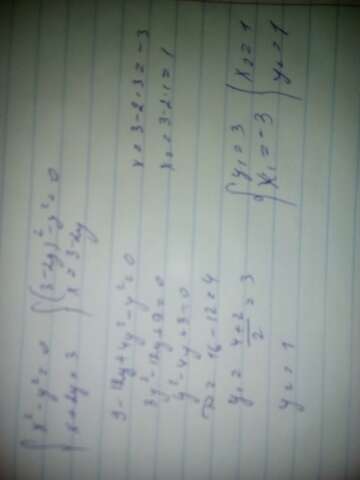 { x² - y² = 0 { (3-2y)² - y² = 0
{ x + 2y = 3 { x = 3-2y
9 - 12y + 4y² - y² = 0
3y² - 12y + 9 = 0
y² - 4y + 3 = 0
D = 16 - 12 = 4
y₁ = (4+2)/2 = 3
y₂ = 1
x₁ = 3-2·3 = -3
x₂ = 3-2·1 = 1
{ y₁ = 3 { x₂ = 1
{ x₁ = -3 { y₂ = 1